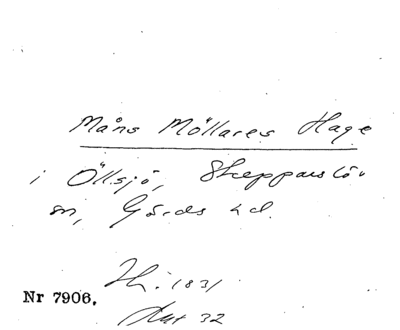 Måns Möllares Hage
i Öllsjö, Skepparslöv
sn, Gärds hd.
1831
Nr 7906.
32